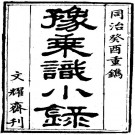 同治癸酉重鐫
豫乘識小錄
文耀齋刊